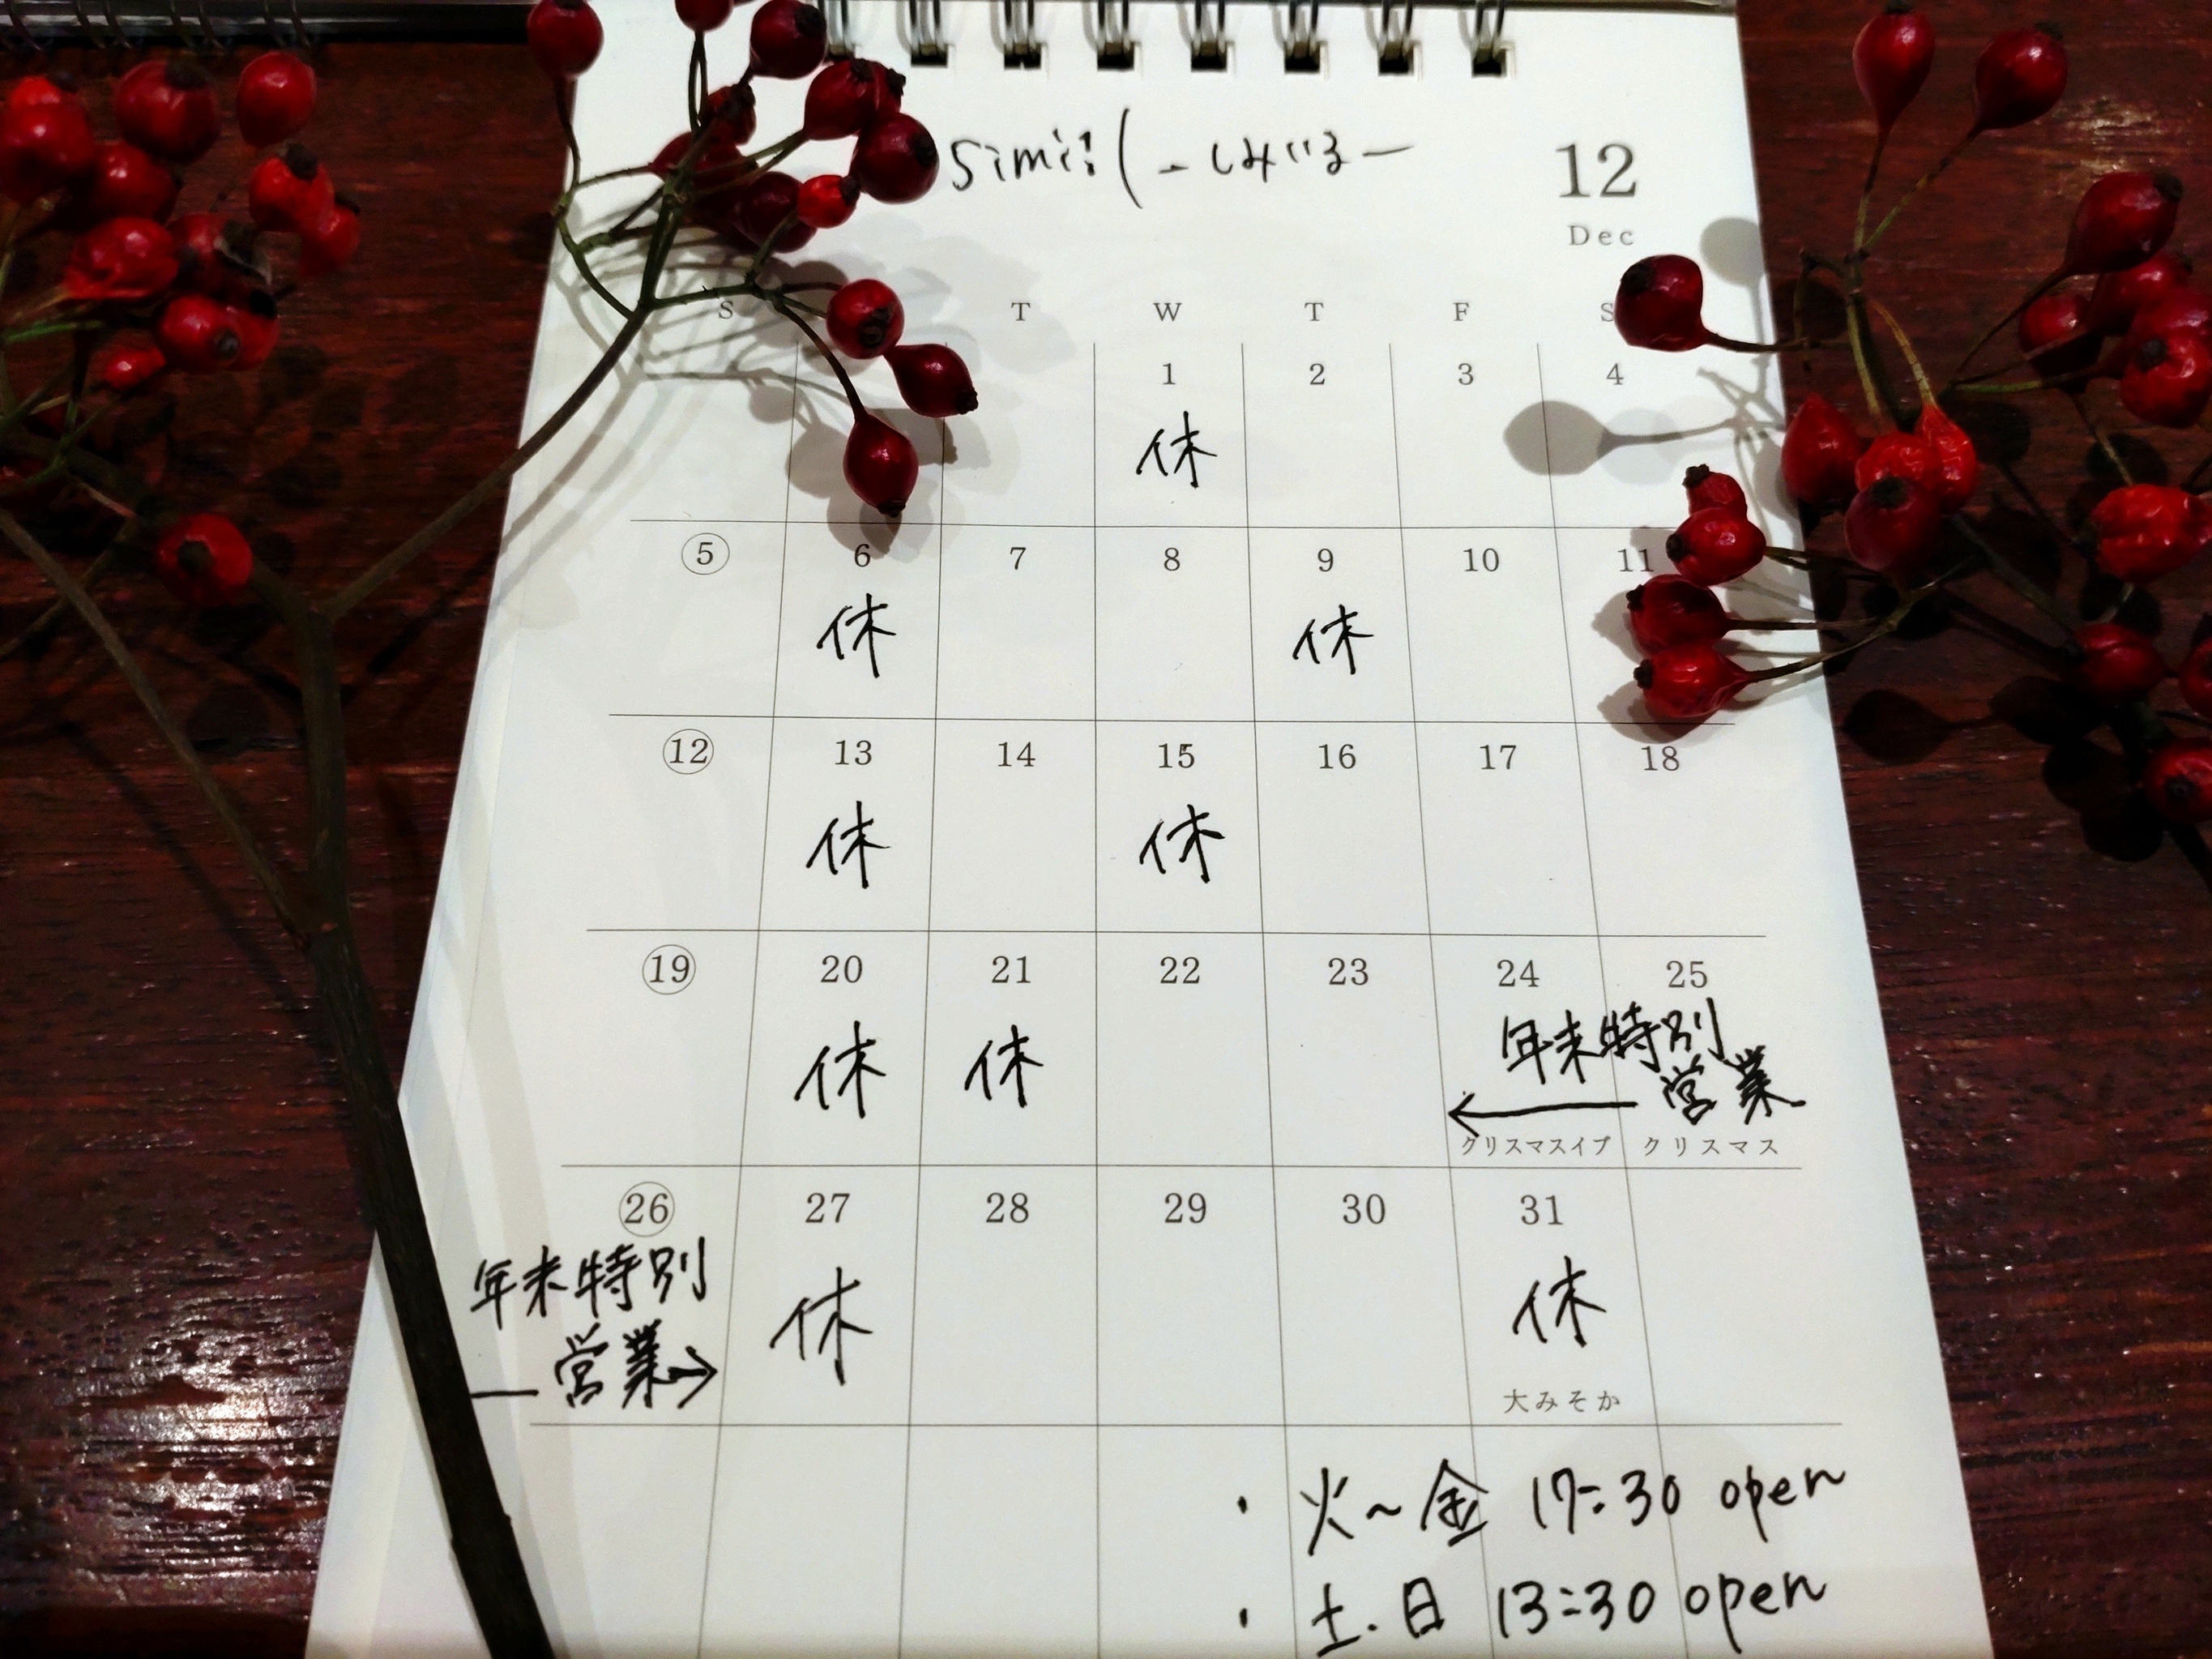 simi!( ーしみいるー
12
Dec
S T W T F S
1 2 3 4
休
5 6 7 8 9 10 11
休 休
12 13 14 15 16 17 18
休 休
19 20 21 22 23 24 25
休 休
年末特別
営業
クリスマスイブ クリスマス
26 27 28 29 30 31
年末特別
営業
休 休
大みそか
・火〜金 17:30 open
・土.日 13:30 open